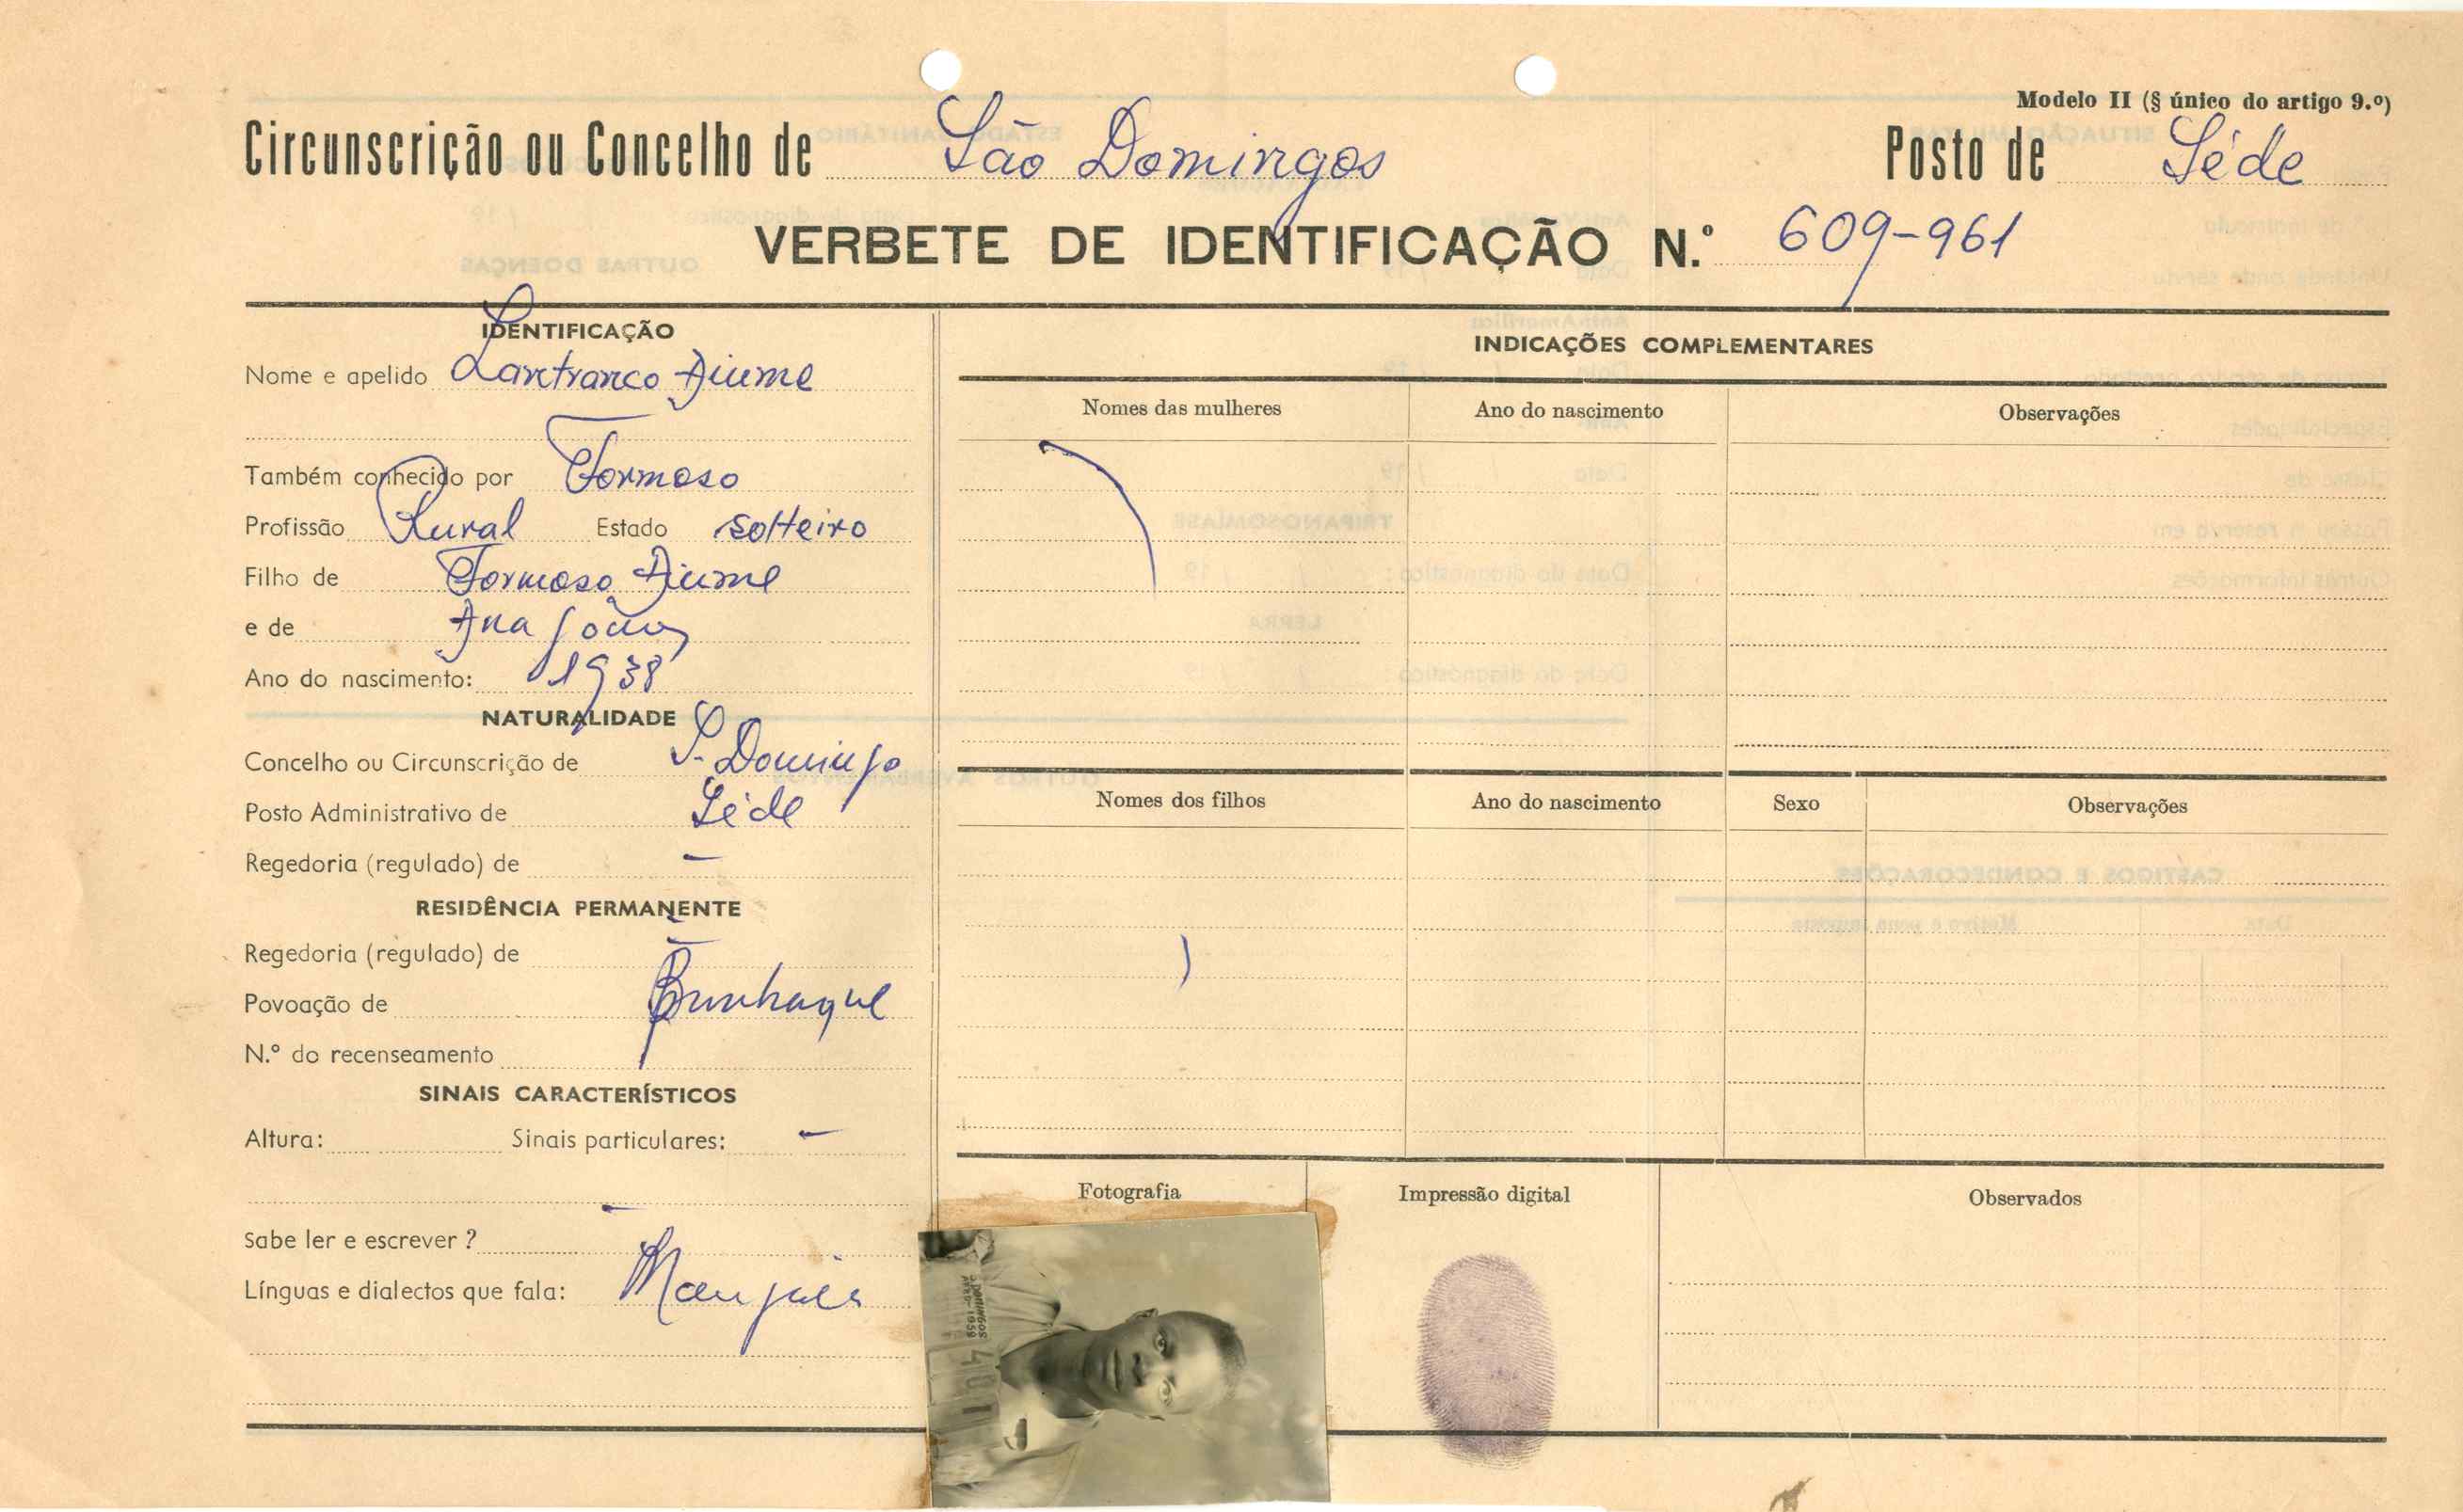 Modelo II (§ único do artigo 9.º)
Circunscrição ou Concelho de São Domingos Posto de Séde
VERBETE DE IDENTIFICAÇÃO N.º 609-961
IDENTIFICAÇÃO
Nome e apelido Lanfranco Djume
Também conhecido por Formoso
Profissão Rural Estado solteiro
Filho de Formoso Djume
e de Ana
Ano do nascimento: 1938
NATURALIDADE
Concelho ou Circunscrição de S. Domingo
Posto Administrativo de Séde
Regedoria (regulado) de -
RESIDÊNCIA PERMANENTE
Regedoria (regulado) de -
Povoação de
N.º do recenseamento
SINAIS CARACTERÍSTICOS
Altura: Sinais particulares: -
Sabe ler e escrever ? -
Línguas e dialectos que fala:
INDICAÇÕES COMPLEMENTARES
Nomes das mulheres Ano do nascimento Observações
Nomes dos filhos Ano do nascimento Sexo Observações
Fotografia Impressão digital Observados